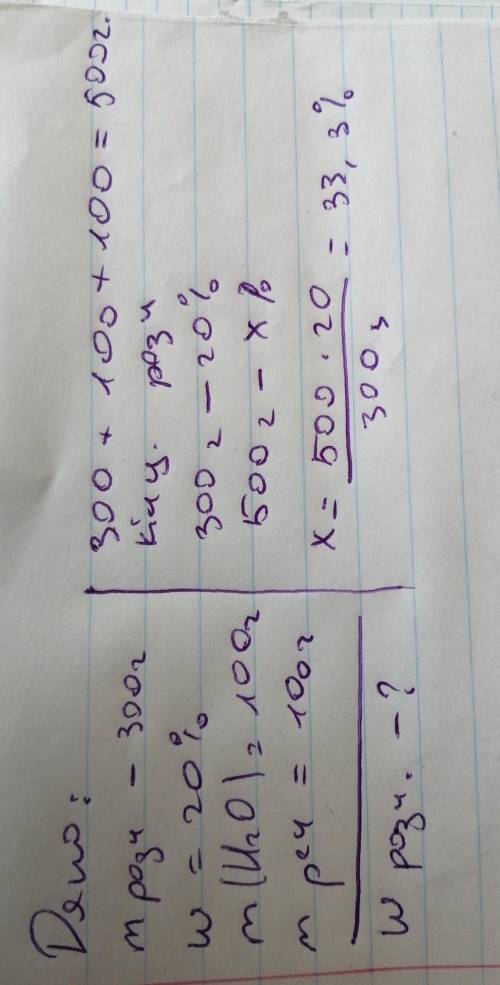 Дано:
m розч – 300г
w = 20%
m(H₂O) = 100г
m реч = 100г
w розч. – ?
300 + 100 + 100 = 500г.
кінц. розч
300г – 20%
500г – x%
x = 500 · 20 / 300г = 33,3%